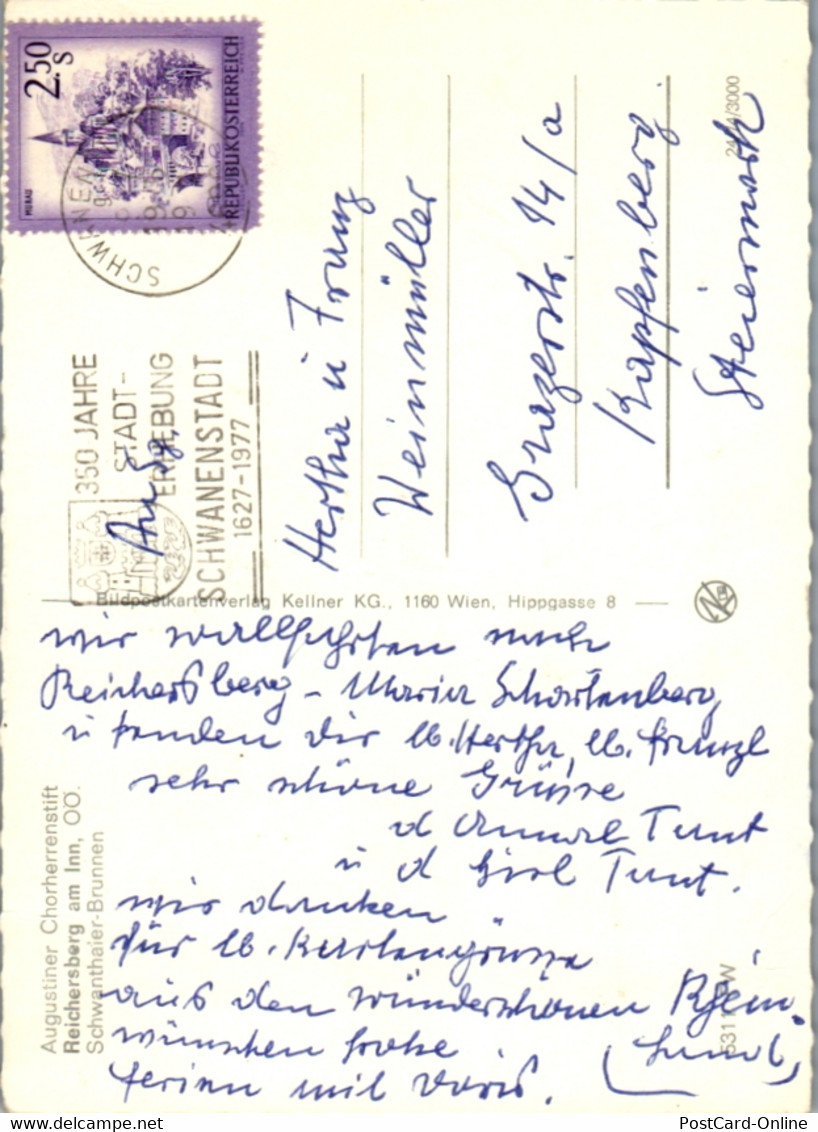 2.50 S
MURAU
REPUBLIK ÖSTERREICH
SCHWANEN
350 JAHRE
STADT-
ERHEBUNG
SCHWANENSTADT
1627-1977
Hertha u Franz
Weinmüller
Grazerstr. 14/a
Kapfenberg
Steiermark
/3000
Bildpostkartenverlag Kellner KG., 1160 Wien, Hippgasse 8
Augustiner Chorherrenstift
Reichersberg am Inn, OÖ.
Schwanthaler-Brunnen
wir wallfahrten nach
Reichersberg - Maria Schartenberg
u senden dir lb. Hertha, lb. Franzl
sehr schöne Grüsse
d Tant
u d Tant.
wir danken
für lb. Kartengrüsse
aus den wunderschönen Rhein-
(land)
wünschen frohe
ferien mit Doris.
PostCard-Online